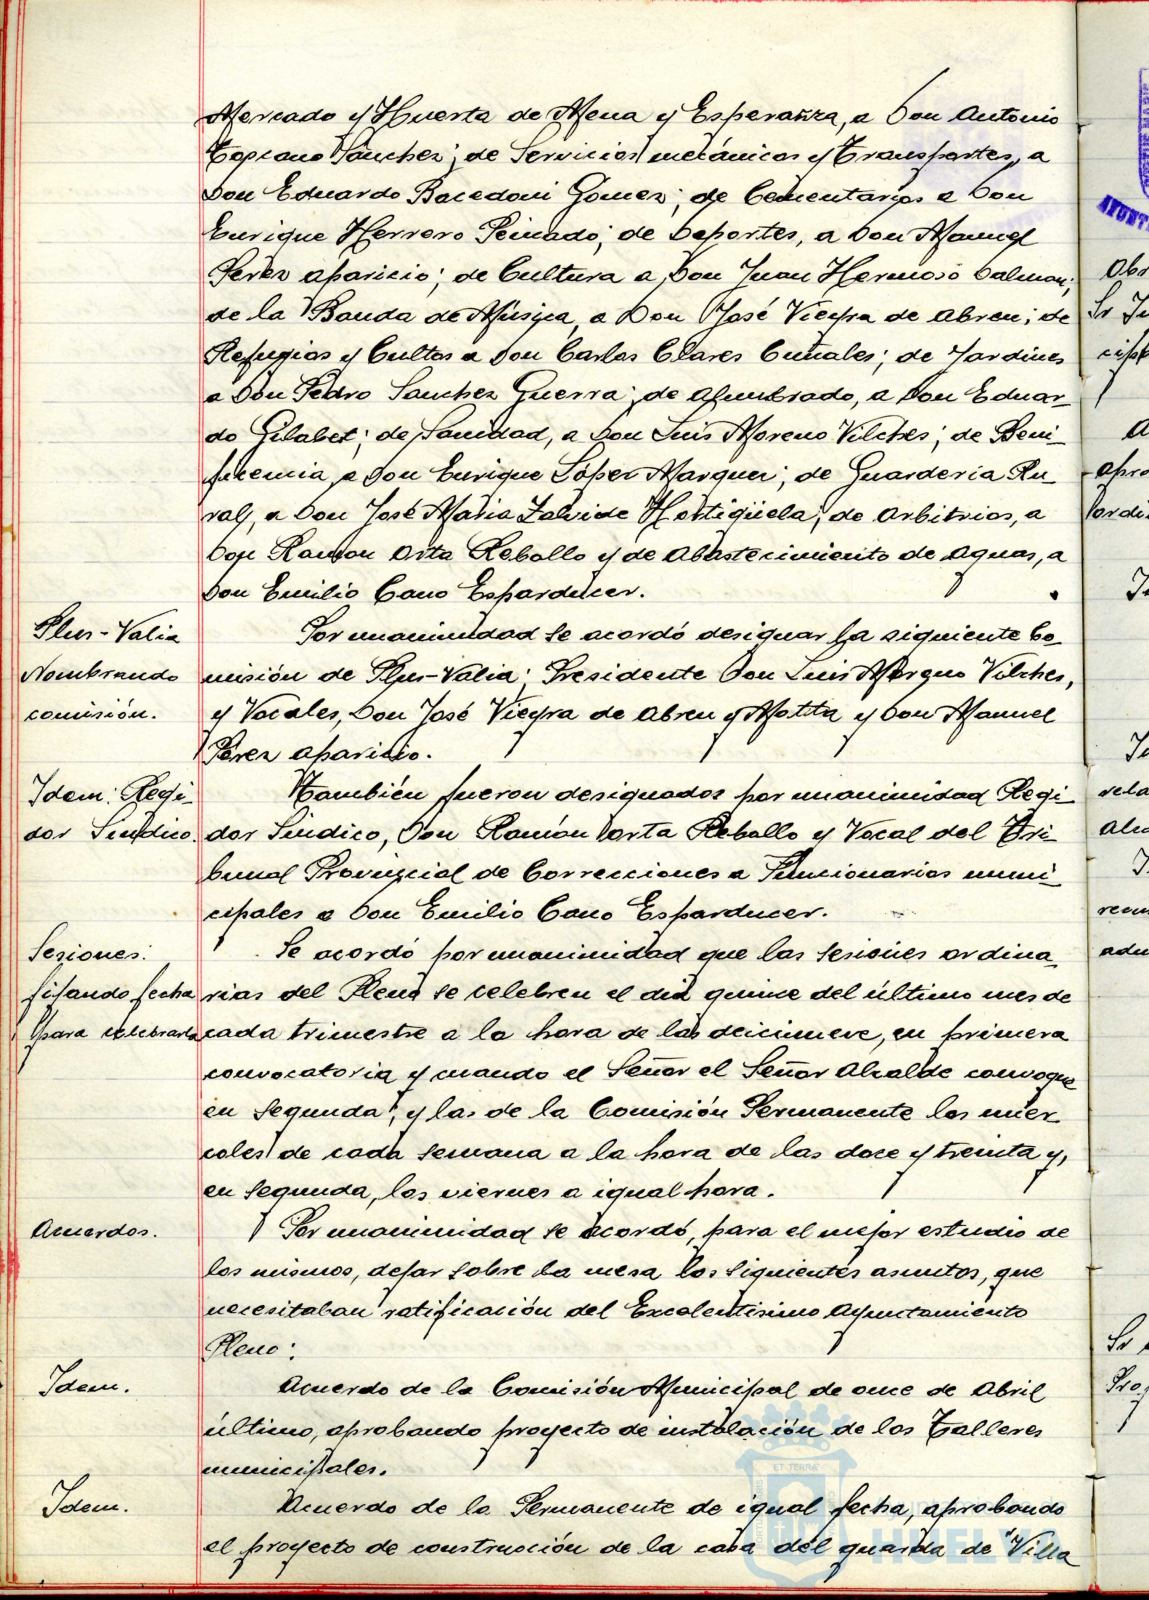 Mercado y Huerta de Mena y Esperanza, a Don Antonio
Toscano Sánchez; de Servicios mecánicos y Transportes, a
Don Eduardo Bacedoni Gomez; de Cementarios a Don
Enrique Herrero Peinado; de Deportes, a Don Manuel
Perez aparicio; de Cultura a Don Juan Hermoso Dalmau;
de la Banda de Música a Don José Vieyra de Abreu; de
Refugios y Cultos a Don Carlos Clares Cuñales; de Jardines
a Don Pedro Sanchez Guerra; de Alumbrado, a Don Eduar-
do Gilabet; de Sanidad, a Don Luis Moreno Vilches; de Beni-
ficencia, a Don Enrique López Marquez; de Guarderia Ru-
ral, a Don José Maria Zalvide Hortigüela; de Arbitrios, a
Don Ramon Orta Rebollo y de Abastecimiento de Aguas, a
Don Emilio Cano Esparducer.
Plus-Valia
Nombrando
comisión.
Por unanimidad se acordó designar la siguiente Co-
misión de Plus-Valia: Presidente Don Luis Vilches,
y Vocales, Don José Vieyra de Abreu y Motta y Don Manuel
Perez aparicio.
Idem: Regi-
dor Sindico.
También fueron designados por unanimidad Regi-
dor Sindico, Don Ramón orta Rebollo y Vocal del Tri-
bunal Provincial de Correcciones a Funcionarios muni-
cipales a Don Emilio Cano Esparducer.
Sesiones:
fijando fecha
para celebrarla
Se acordó por unanimidad que las sesiones ordina-
rias del Pleno se celebren el dia quince del último mes de
cada trimestre a la hora de las deicinueve, en primera
convocatoria y cuando el Señor el Señor Alcalde convoque
en segunda, y las de la Comisión Permanente los miér-
coles de cada semana a la hora de las doce y treinta y,
en segunda, los viernes a igual hora.
Acuerdos.
Por unanimidad se acordó, para el mejor estudio de
los mismos, dejar sobre la mesa los siguientes asuntos, que
necesitaban ratificación del Excelentísimo Ayuntamiento
Pleno:
Idem.
Acuerdo de la Comisión Municipal de once de Abril
último, aprobando proyecto de instalación de los Talleres
municipales.
Idem.
Acuerdo de la Permanente de igual fecha, aprobando
el proyecto de construcción de la casa del guarda de "Villa